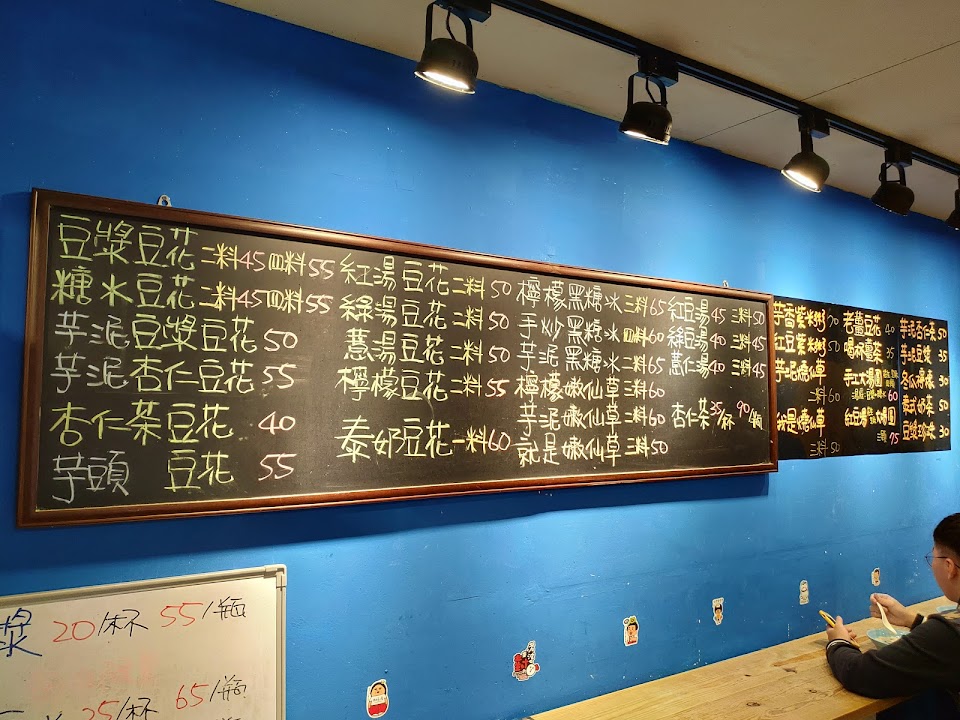 豆漿豆花 二料45 四料55
糖水豆花 二料45 四料55
芋泥豆漿豆花 50
芋泥杏仁豆花 55
杏仁茶豆花 40
芋頭 豆花 55
紅湯豆花二料 50
綠湯豆花二料 50
薏湯豆花二料 50
檸檬豆花二料 55
泰奶豆花一料60
檸檬黑糖冰三料65
手炒黑糖冰四料60
芋泥黑糖冰二料65
檸檬嫩仙草三料60
芋泥嫩仙草三料60
就是嫩仙草三料50
紅豆湯45 三料50
綠豆湯40 三料45
薏仁湯40 三料45
杏仁茶35/杯 90/瓶
芋香紫米粥 70
紅豆紫米粥 50
芋泥燒仙草
二料60
就是燒仙草
三料50
老薑豆花 40
喝杯薑茶 35
手工大湯圓
60
紅豆湯
大湯圓
三顆 75
芋泥杏仁茶 50
芋泥豆漿 35
冬瓜檸檬 30
泰式奶茶 50
豆漿紅茶 30
漿 20/杯 55/瓶
25/杯 65/瓶